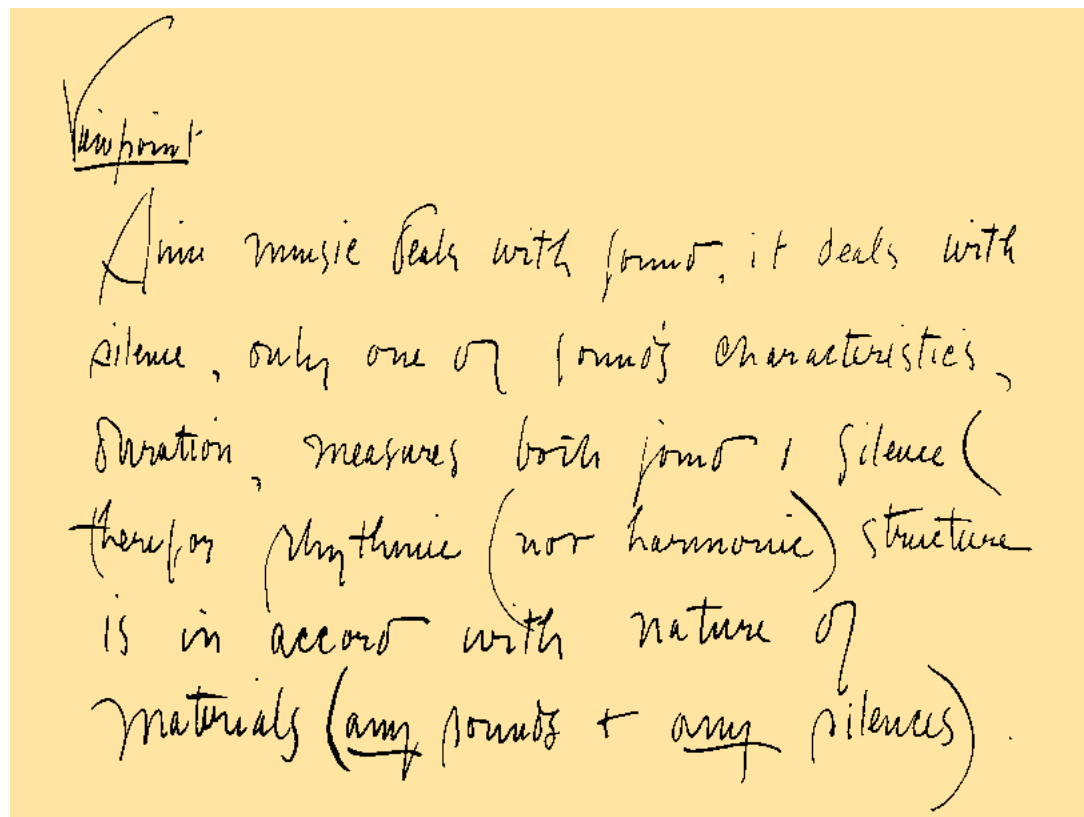 Viewpoint
Since music deals with sound, it deals with
silence, only one of sound's characteristics,
duration, measures both sound + silence (
therefor rhythmic (not harmonic) structure
is in accord with nature of
materials (any sounds + any silences).